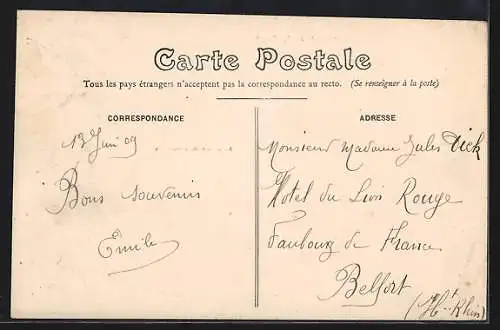 Carte Postale
Tous les pays étrangers n'acceptent pas la correspondance au recto. (Se renseigner à la poste)
CORRESPONDANCE
13 Juin 09
Bons souvenirs
Émile
ADRESSE
Monsieur Madame Jules Dick
Hotel du Lion Rouge
Faubourg de France
Belfort
(Ht Rhin)